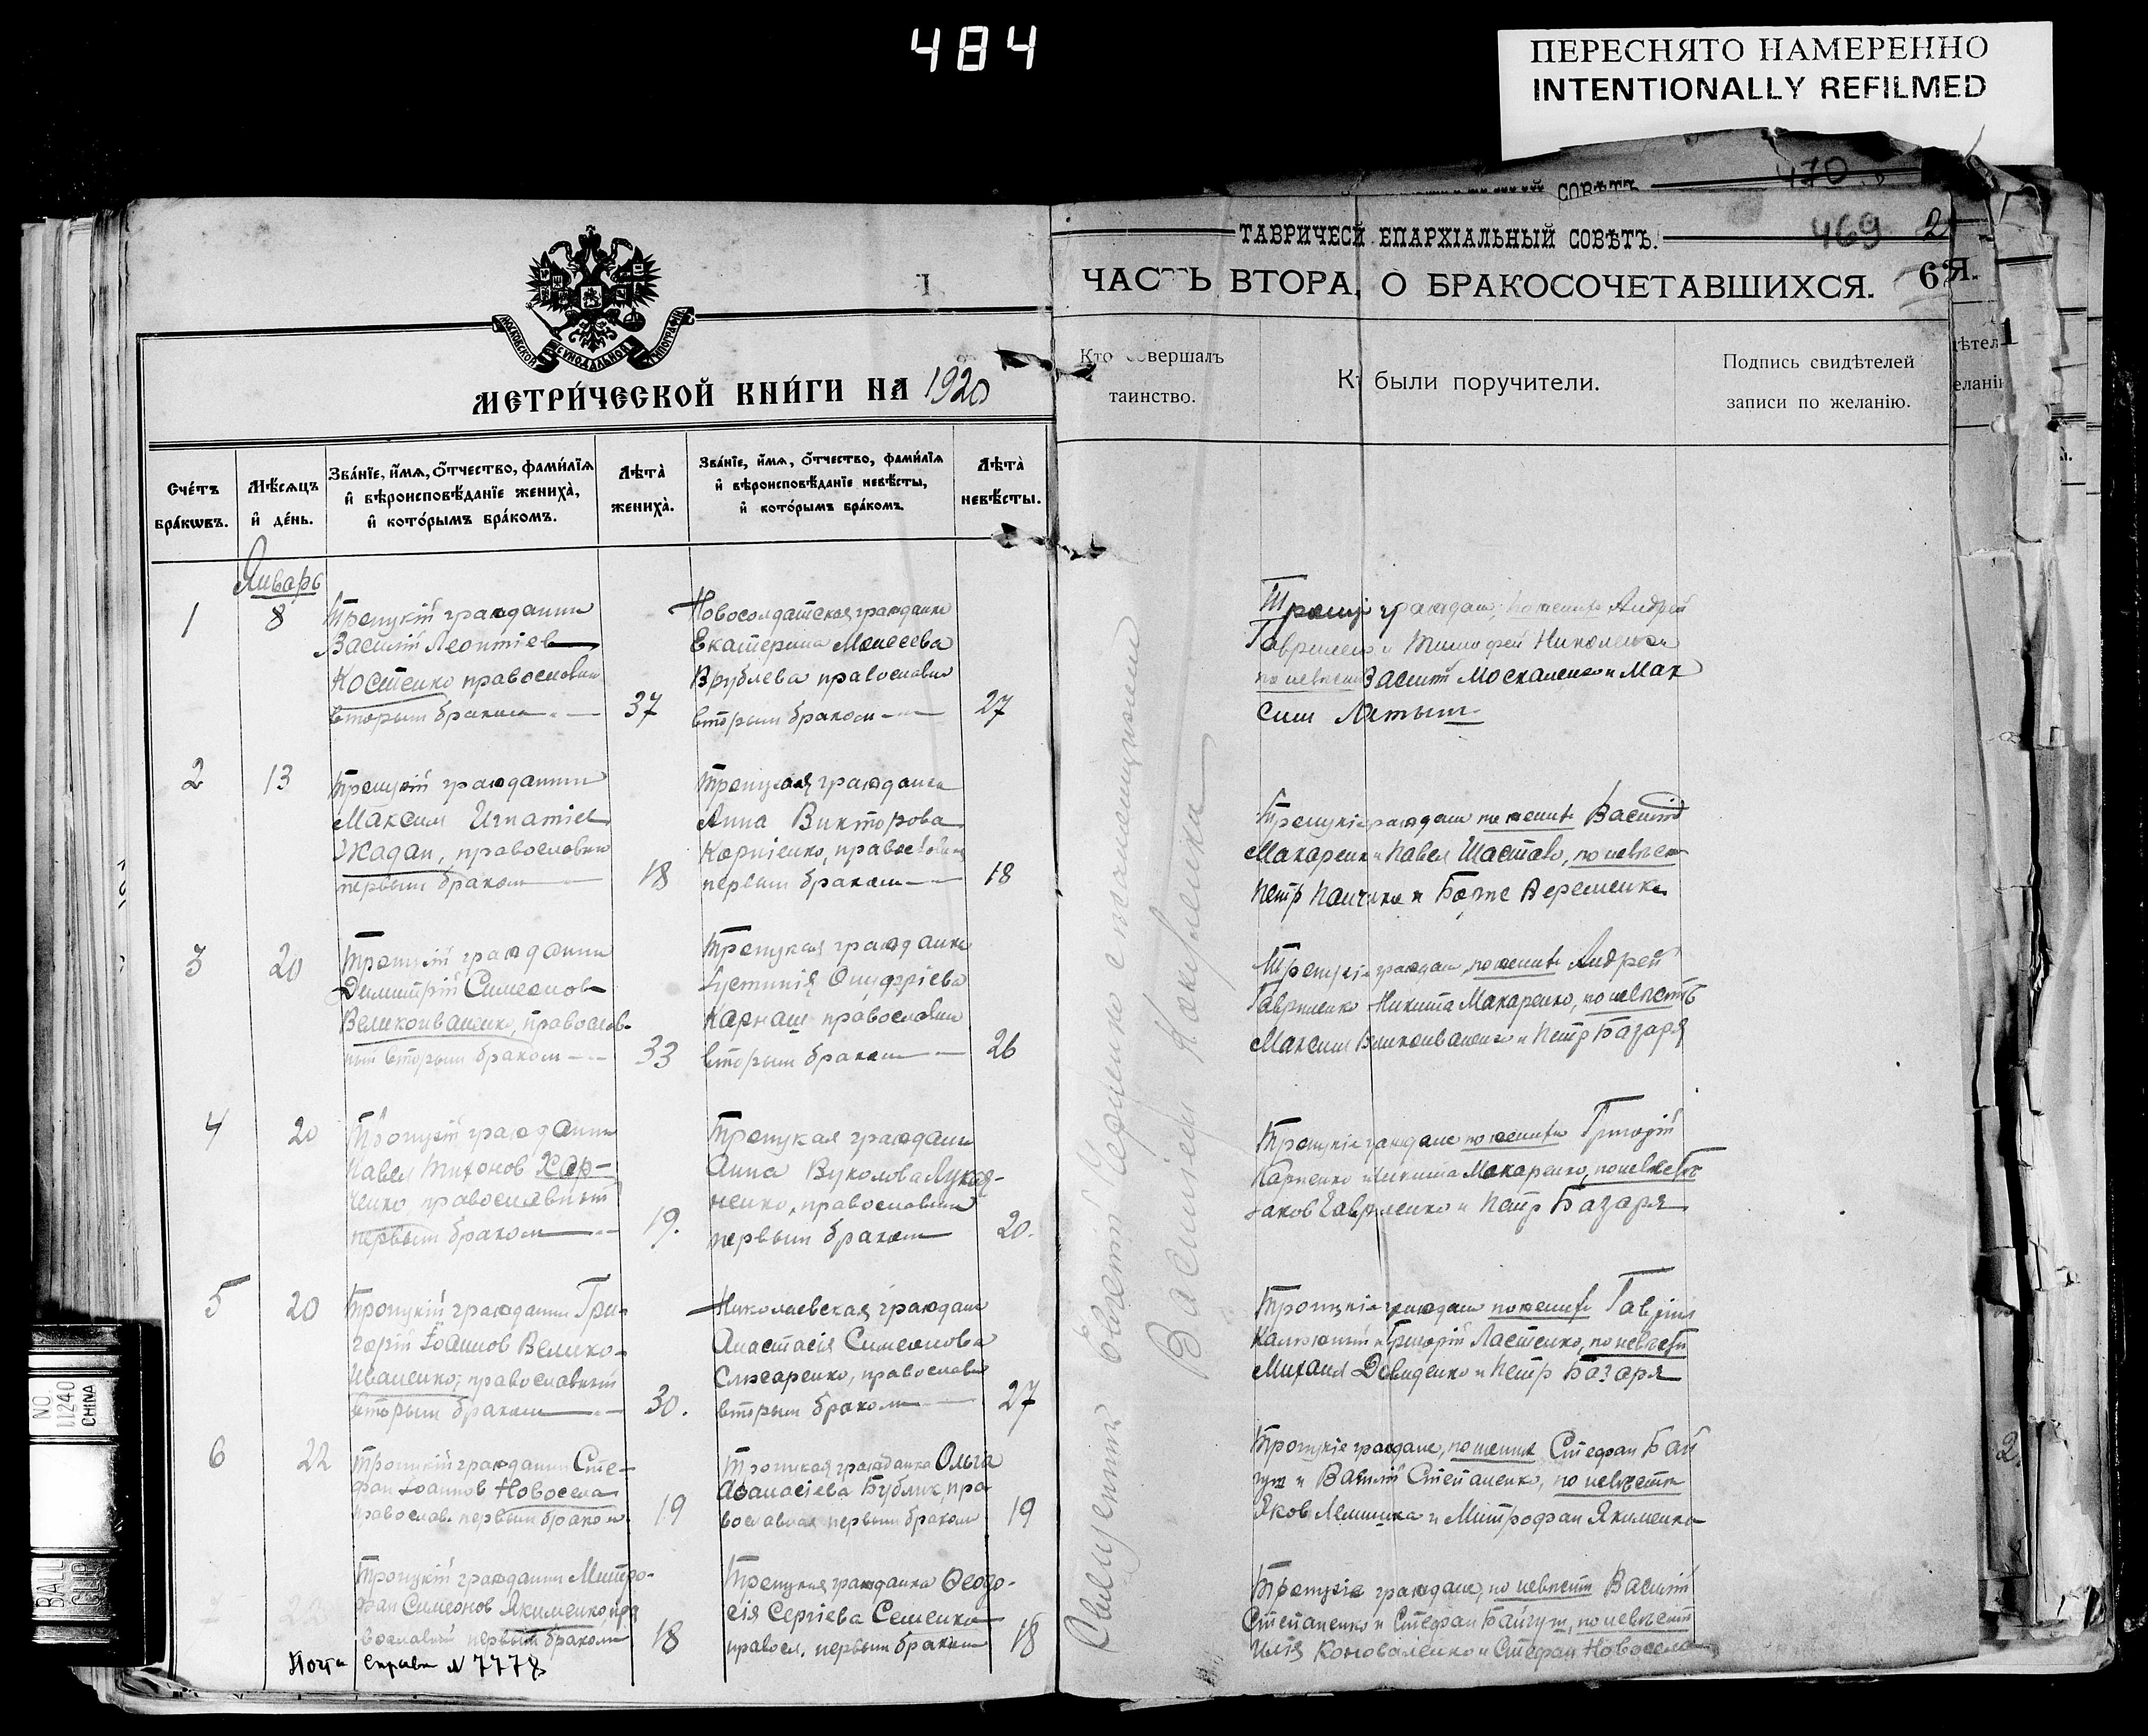 484
ПЕРЕСНЯТО НАМЕРЕННО
INTENTIONALLY REFILMED
470
СОВѢТЪ
ТАВРИЧЕСЙ ЕПАРХІАЛЬНЫЙ СОВѢТЪ.
469
2
ЧАСТЬ ВТОРА, О БРАКОСОЧЕТАВШИХСЯ.
6
Я.
І
МОСКОВСКОЙ СУНОДАЛЬНОЙ ТИПОГРАФІИ
МЕТРИ́ЧЕСКОЙ КНИ́ГИ НА 1920
Сче́тъ бра́кѡвъ.
Мѣ́сяцъ и҆ де́нь.
Зва́нїе, и҆́мѧ, ѻ҆́тчество, фами́лїѧ и҆ вѣроисповѣ́данїе жениха̀, и҆ кото́рымъ бра́комъ.
Лѣта̀ жениха̀.
Зва́нїе, и҆́мѧ, ѻ҆́тчество, фами́лїѧ и҆ вѣроисповѣ́данїе невѣ́сты, и҆ кото́рымъ бра́комъ.
Лѣта̀ невѣ́сты.
Кто совершалъ таинство.
К были поручители.
Подпись свидѣтелей записи по желанію.
Январь
1
8
Троицкій гражданин
Василій Леонтіев
Костенко православный
вторым браком
37
Новосолдатская гражданка
Екатерина Моисеева
Врублева православн
вторым браком
27
граждан, по жениху Андрей
Гавриленко и Тимофей Николенко
по невесте Василій Москаленко и Мак
сим
2
13
Троицкій гражданин
Максим Игнатіев
Жадан, православный
первым браком
18
Троицкая гражданка
Анна Викторова
Корніенко, православная
первым браком
18
Троицкіе граждане по женихе Василій
Макаренко и Павел Шаставо, по невесте
Петр и
3
20
Троицкій гражданин
Димитрій Симеонов
Великоиваненко, православ-
ный вторым браком
33
Троицкая гражданка
Іустинія Онуфріева
Карнаш православн
вторым браком
26
Троицкіе граждане, по женихе Андрей
Гавриленко Никита Макаренко, по невесте
Максим Великоиваненко и Петр Базаря
4
20
Троицкій гражданин
Павел Тихонов Хар-
ченко, православный
первым браком
19.
Троицкая гражданка
Анна Вуколова Лукья-
ненко, православная
первым браком
20.
Троицкіе граждане по женихе Григорій
Карпенко и Никита Макаренко, по невесте
Іаков Гавриленко и Петр Базаря
5
20
Троицкій гражданин Гри-
горій Іоаннов Велико-
иваненко, православный
вторым браком
30.
Николаевская гражданка
Анастасія Симеонова
Слюсаренко, православн
вторым браком
27
Троицкіе граждане по женихе Гавріил
и Григорій Ластенко, по невесте
Михаил Давиденко и Петр Базаря
6
22
Троицкій гражданин Сте-
фан Іоаннов Новосела
православ. первым браком
19
Троицкая гражданка Ольга
Аѳанасіева Бублик, пра-
вославная первым браком
19
Троицкіе граждане, по жениху Стефан Бай
гуш и Василій Степаненко, по невесте
Яков и Митрофан Якименко
Троицкій гражданин Митро-
фан Симеонов Якименко, пра
вославный первым браком
18
Троицкая гражданка Ѳеодо-
сія Сергіева Семенко
правосл. первым браком
18
Троицкіе граждане, по невесте Василій
Степаненко и Стефан Байгуш, по невесте
Илія Коноваленко и Стефан Новосела
Священник Алексій Черненко с псаломщиком
Василіем
справка № 7778
2.
NO 11240 CHINA
BALL CLIP